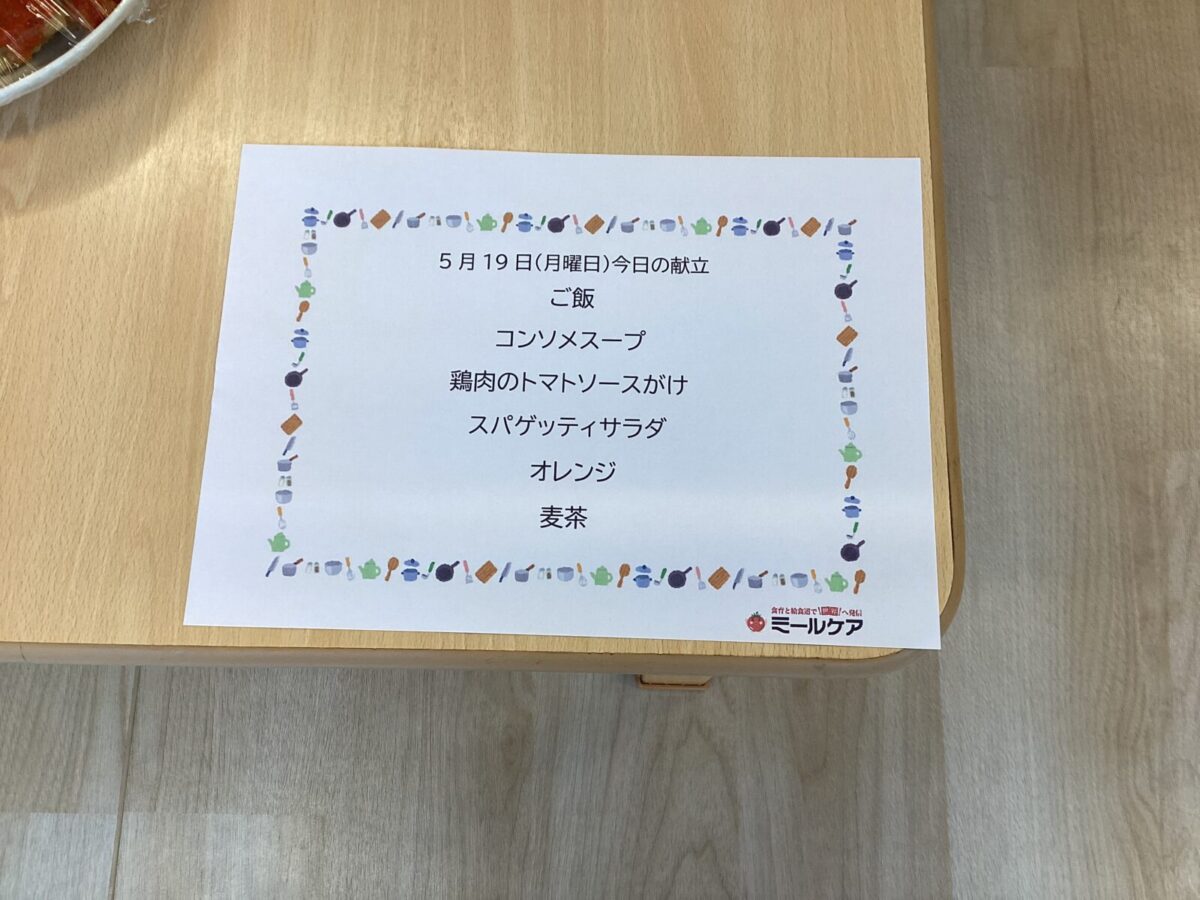 5月19日(月曜日)今日の献立
ご飯
コンソメスープ
鶏肉のトマトソースがけ
スパゲッティサラダ
オレンジ
麦茶
食育と給食迎で へ発信
ミールケア